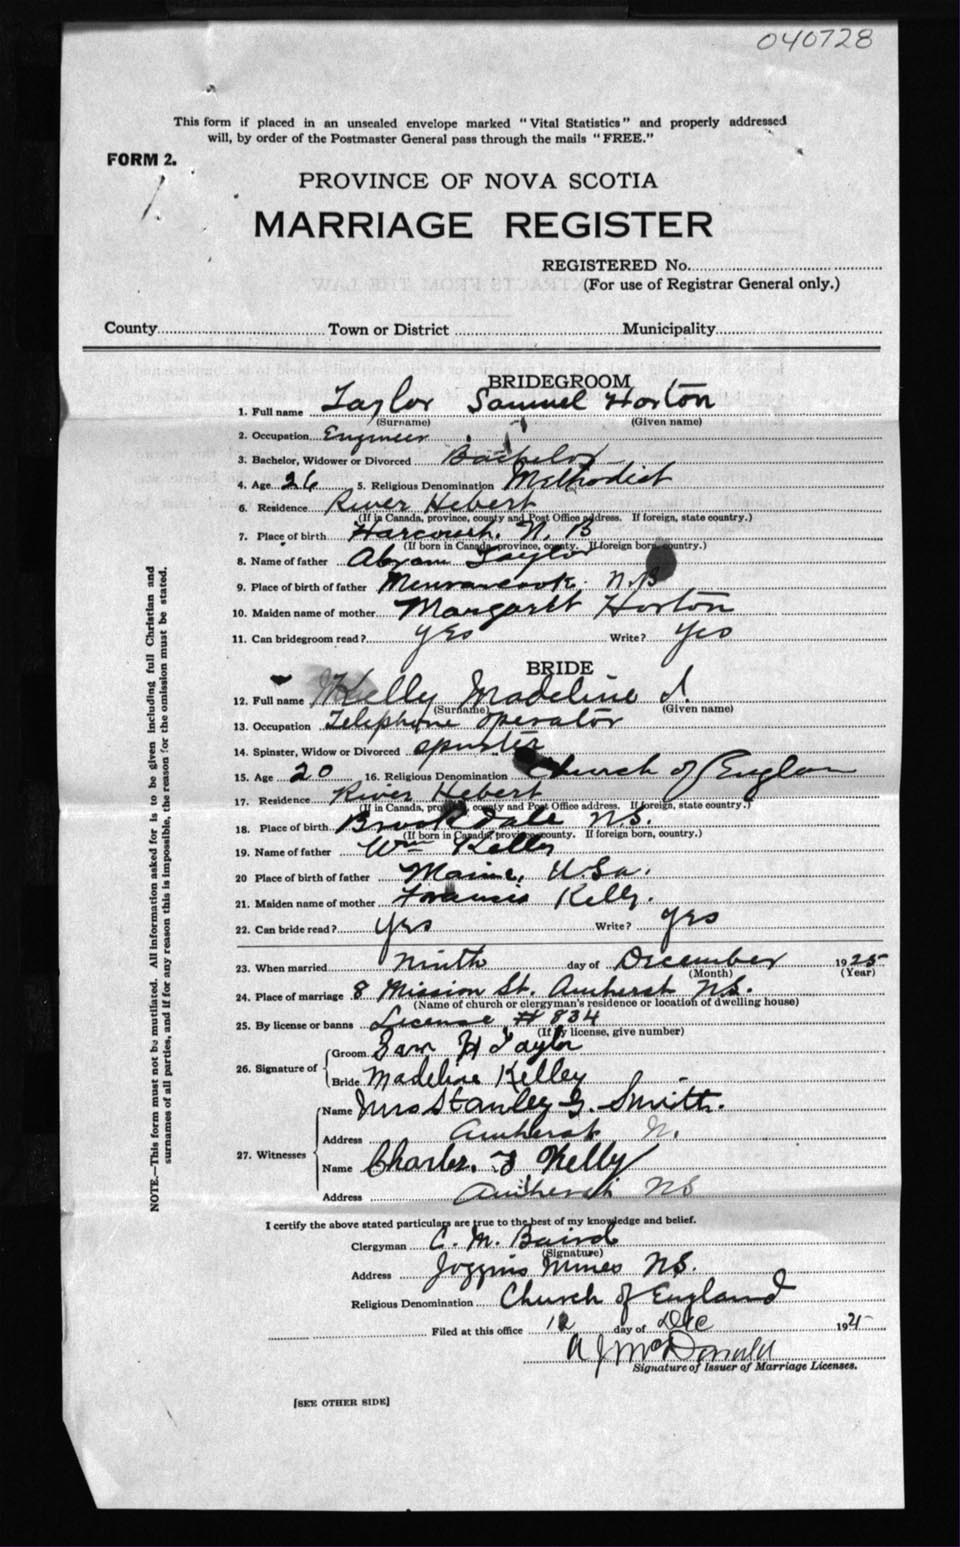 040728
This form if placed in an unsealed envelope marked "Vital Statistics" and properly addressed
will, by order of the Postmaster General pass through the mails "FREE."
FORM 2.
PROVINCE OF NOVA SCOTIA
MARRIAGE REGISTER
REGISTERED No.
(For use of Registrar General only.)
County Town or District Municipality
BRIDEGROOM
1. Full name Taylor Samuel Horton
(Surname) (Given name)
2. Occupation Engineer
3. Bachelor, Widower or Divorced Bachelor
4. Age 26 5. Religious Denomination Methodist
6. Residence River Hebert
(If in Canada, province, county and Post Office address. If foreign, state country.)
7. Place of birth Harcourt, N. B
(If born in Canada, province, county. If foreign born, country.)
8. Name of father Abram Taylor
9. Place of birth of father N.B
10. Maiden name of mother Margaret Horton
11. Can bridegroom read? yes Write? yes
BRIDE
12. Full name Kelly Madeline J.
(Surname) (Given name)
13. Occupation Telephone operator
14. Spinster, Widow or Divorced spinster
15. Age 20 16. Religious Denomination Church of Englan
17. Residence River Hebert
(If in Canada, province, county and Post Office address. If foreign, state country.)
18. Place of birth Brookdale NS.
(If born in Canada, province, county. If foreign born, country.)
19. Name of father Wm Kelly
20 Place of birth of father Maine, USa.
21. Maiden name of mother Francis Kelly.
22. Can bride read? yes Write? yes
23. When married Ninth day of December 1925
(Month) (Year)
24. Place of marriage 8 Mission St. Amherst NS.
(Name of church or clergyman's residence or location of dwelling house)
25. By license or banns License # 834
(If by license, give number)
26. Signature of Groom Sam H Taylor
Bride Madeline Kelley
27. Witnesses Name Mrs Stanley G. Smith.
Address Amherst N.
Name Charles F Kelly
Address Amherst NS
I certify the above stated particulars are true to the best of my knowledge and belief.
Clergyman C. M. Baird
(Signature)
Address Joggins Mines NS.
Religious Denomination Church of England
Filed at this office 12 day of Dec 1925
A J McDonald
Signature of Issuer of Marriage Licenses.
[SEE OTHER SIDE]
NOTE.—This form must not be mutilated. All information asked for is to be given including full Christian and
surnames of all parties, and if for any reason this is impossible, the reason for the omission must be stated.